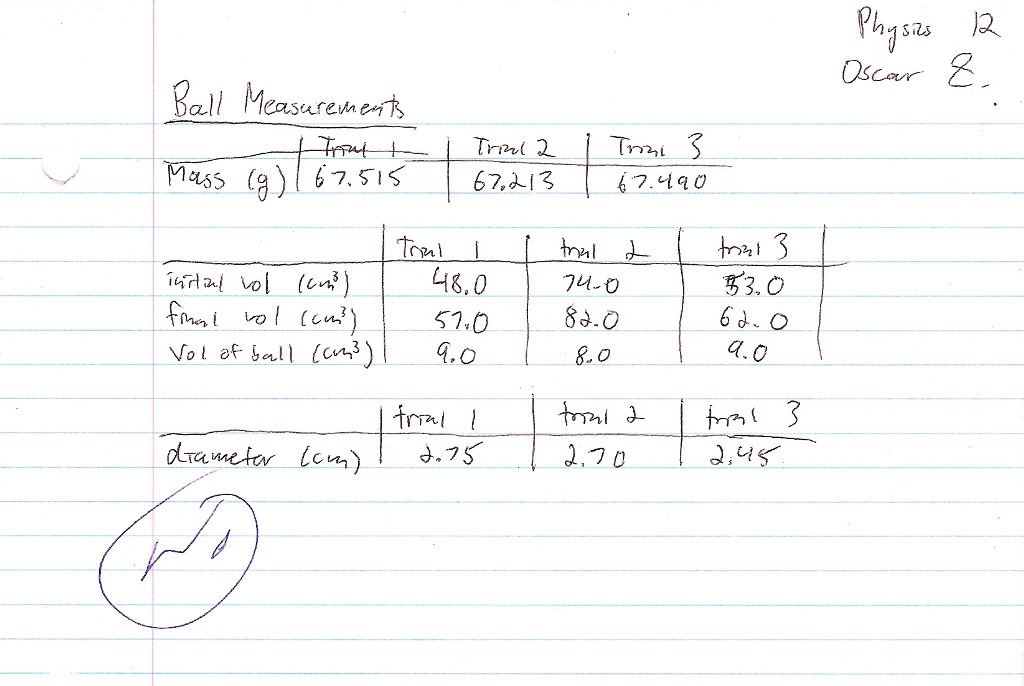 Physics 12
Oscar Z.
Ball Measurements
Trial 1 Trial 2 Trial 3
Mass (g) 67.515 67.213 67.490
Trial 1 trial 2 trial 3
initial vol (cm³) 48.0 74.0 53.0
final vol (cm³) 57.0 82.0 62.0
Vol of ball (cm³) 9.0 8.0 9.0
trial 1 trial 2 trial 3
diameter (cm) 2.75 2.70 2.45